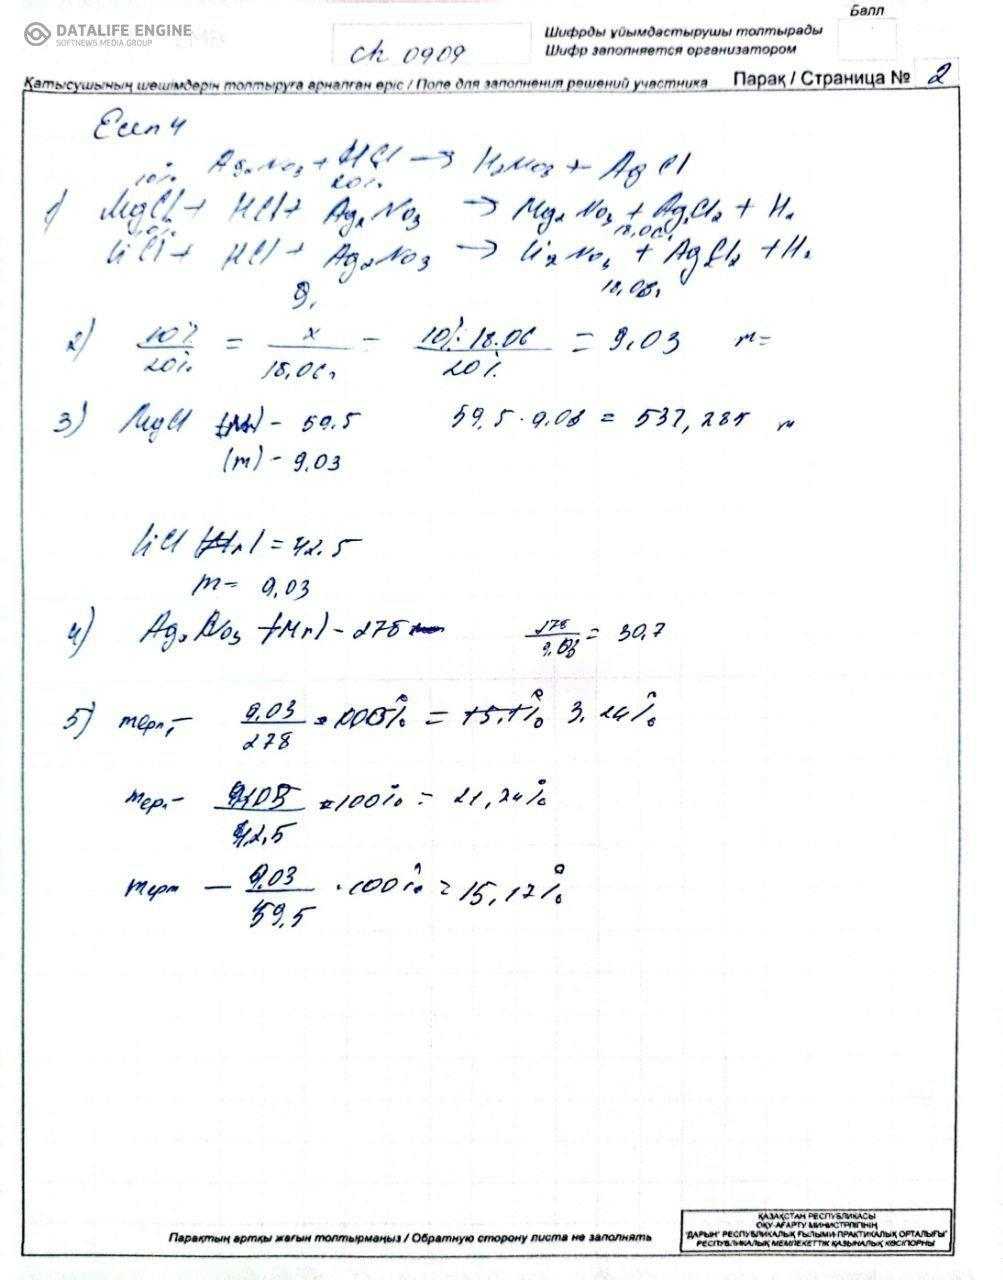 DATALIFE ENGINE
SOFTNEWS MEDIA GROUP
Балл
Шифрды ұйымдастырушы толтырады
ск 0909
Шифр заполняется организатором
Қатысушының шешімдерін толтыруға арналған өріс / Поле для заполнения решений участника
Парақ / Страница № 2
Есеп 4
Ag₂NO₃ + HCl → H₂NO₃ + AgCl
10% 20%
1) MgCl₂ + HCl + Ag₂NO₃ → Mg₂NO₃ + AgCl₂ + H₂
18,06
LiCl + HCl + Ag₂NO₃ → Li₂NO₃ + AgCl₂ + H₂
18,06
2) 10%/20% = x/18,06 = 10%·18.06/20% = 9,03 m=
3) MgCl (Mr) - 59.5 59,5·9,03 = 537,285
(m) - 9,03
LiCl (Mr) = 42.5
m= 9,03
4) Ag₂NO₃ (Mr) - 278 278/9,03 = 30,7
5) mерт - 9.03/278 · 100% = 15,1% 3,24%
mерт - 9,03/42,5 · 100% = 21,24%
mерт - 9,03/59,5 · 100% = 15,17%
Парақтың артқы жағын толтырмаңыз / Обратную сторону листа не заполнять
ҚАЗАҚСТАН РЕСПУБЛИКАСЫ
ОҚУ-АҒАРТУ МИНИСТРЛІГІНІҢ
"ДАРЫН" РЕСПУБЛИКАЛЫҚ ҒЫЛЫМИ-ПРАКТИКАЛЫҚ ОРТАЛЫҒЫ"
РЕСПУБЛИКАЛЫҚ МЕМЛЕКЕТТІК ҚАЗЫНАЛЫҚ КӘСІПОРНЫ